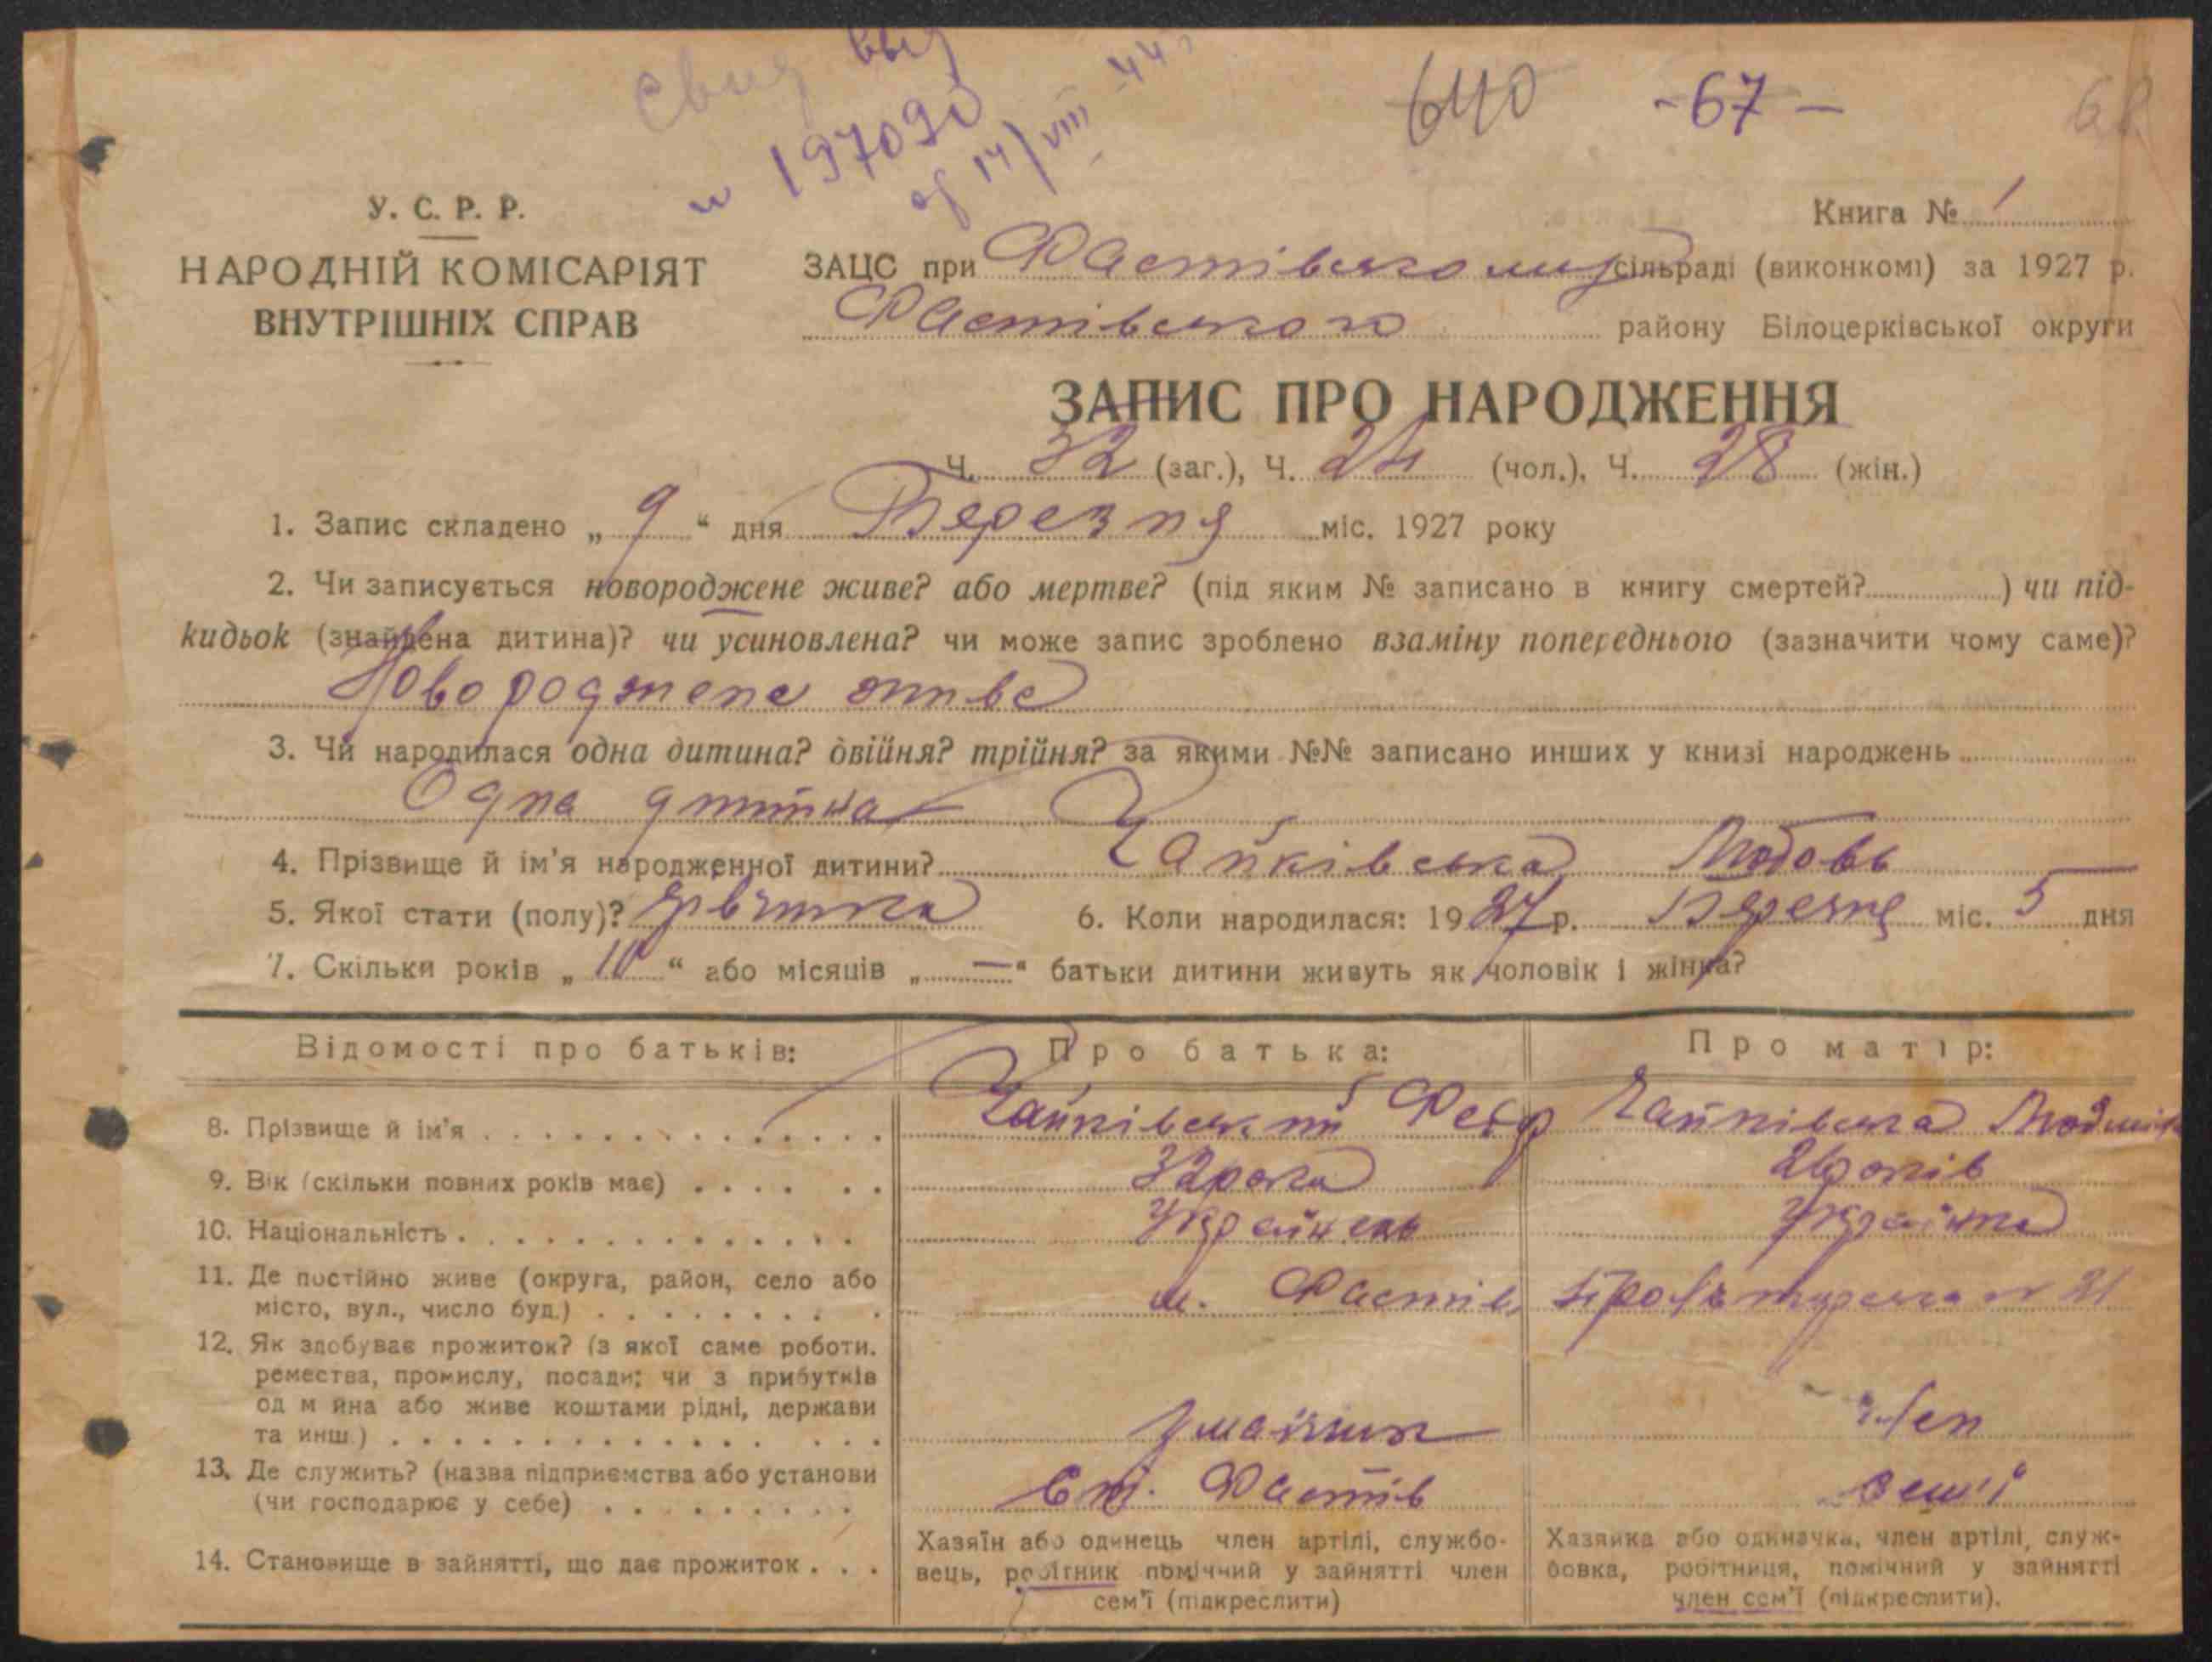 свид выд
№ 197090
от 14/VIII-44
640 -67-
У. С. Р. Р.
НАРОДНІЙ КОМІСАРІЯТ
ВНУТРІШНІХ СПРАВ
Книга № 1
ЗАЦС при Фастівському сільраді (виконкомі) за 1927 р.
Фастівського району Білоцерківської округи
ЗАПИС ПРО НАРОДЖЕННЯ
Ч. 52 (заг.), Ч. 24 (чол.), Ч. 28 (жін.)
1. Запис складено „ 9 “ дня Березня міс. 1927 року
2. Чи записується новороджене живе? або мертве? (під яким № записано в книгу смертей? ) чи під-
кидьок (знайдена дитина)? чи усиновлена? чи може запис зроблено взаміну попереднього (зазначити чому саме)?
Новороджене живе
3. Чи народилася одна дитина? двійня? трійня? за якими №№ записано инших у книзі народжень
Одна дитина
4. Прізвище й ім'я народженної дитини? Чайківська Любовь
5. Якої стати (полу)? дівчинка 6. Коли народилася: 1927 р. Березня міс. 5 дня
7. Скільки років „ 10 “ або місяців „ — “ батьки дитини живуть як чоловік і жінка?
Відомості про батьків: Про батька: Про матір:
8. Прізвище й ім'я Чайківський Чайківська
9. Вік (скільки повних років має) 32 роки 26 років
10. Національність Українець Українка
11. Де постійно живе (округа, район, село або
місто, вул., число буд.) м. Фастів, № 21
12. Як здобуває прожиток? (з якої саме роботи.
ремества, промислу, посади; чи з прибутків
од м йна або живе коштами рідні, держави
та инш.) член
13. Де служить? (назва підприємства або установи
(чи господарює у себе) ст. Фастів семї
14. Становище в зайнятті, що дає прожиток
Хазяїн або одинець член артілі, службо-
вець, робітник помічний у зайнятті член
сем'ї (підкреслити)
Хазяйка або одиначка, член артілі, служ-
бовка, робітниця, помічний у зайнятті
член сем'ї (підкреслити).